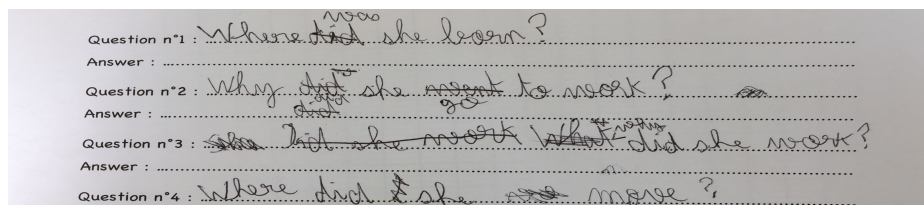 Question n°1 : Where was she born?
Answer :
Question n°2 : Why did she go to work?
Answer :
Question n°3 : Why did she work?
Answer :
Question n°4 : Where did she move?